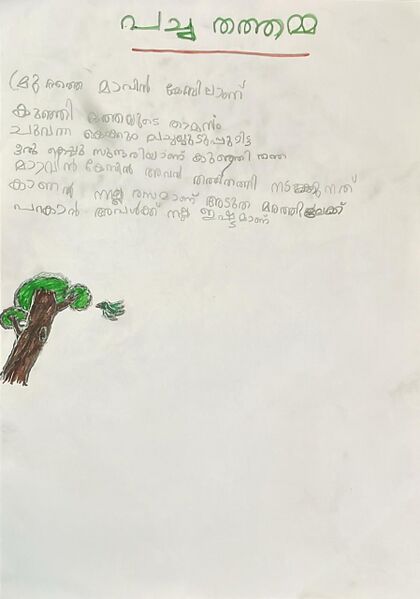 പച്ച തത്തമ്മ
മുറ്റത്തെ മാവിൻ കൊമ്പിലാണ്
കുഞ്ഞി തത്തയുടെ താമസം
ചുവന്ന പച്ചയുടുപ്പുമിട്ട
ഒരു കൊച്ചു സുന്ദരിയാണ് കുഞ്ഞി തത്ത
മാവിൻ കൊമ്പിൽ അവൾ തത്തിതത്തി നടക്കുന്നത്
കാണാൻ നല്ല രസമാണ് അടുത്ത മരത്തിലേക്ക്
പറക്കാൻ അവൾക്ക് നല്ല ഇഷ്ടമാണ്